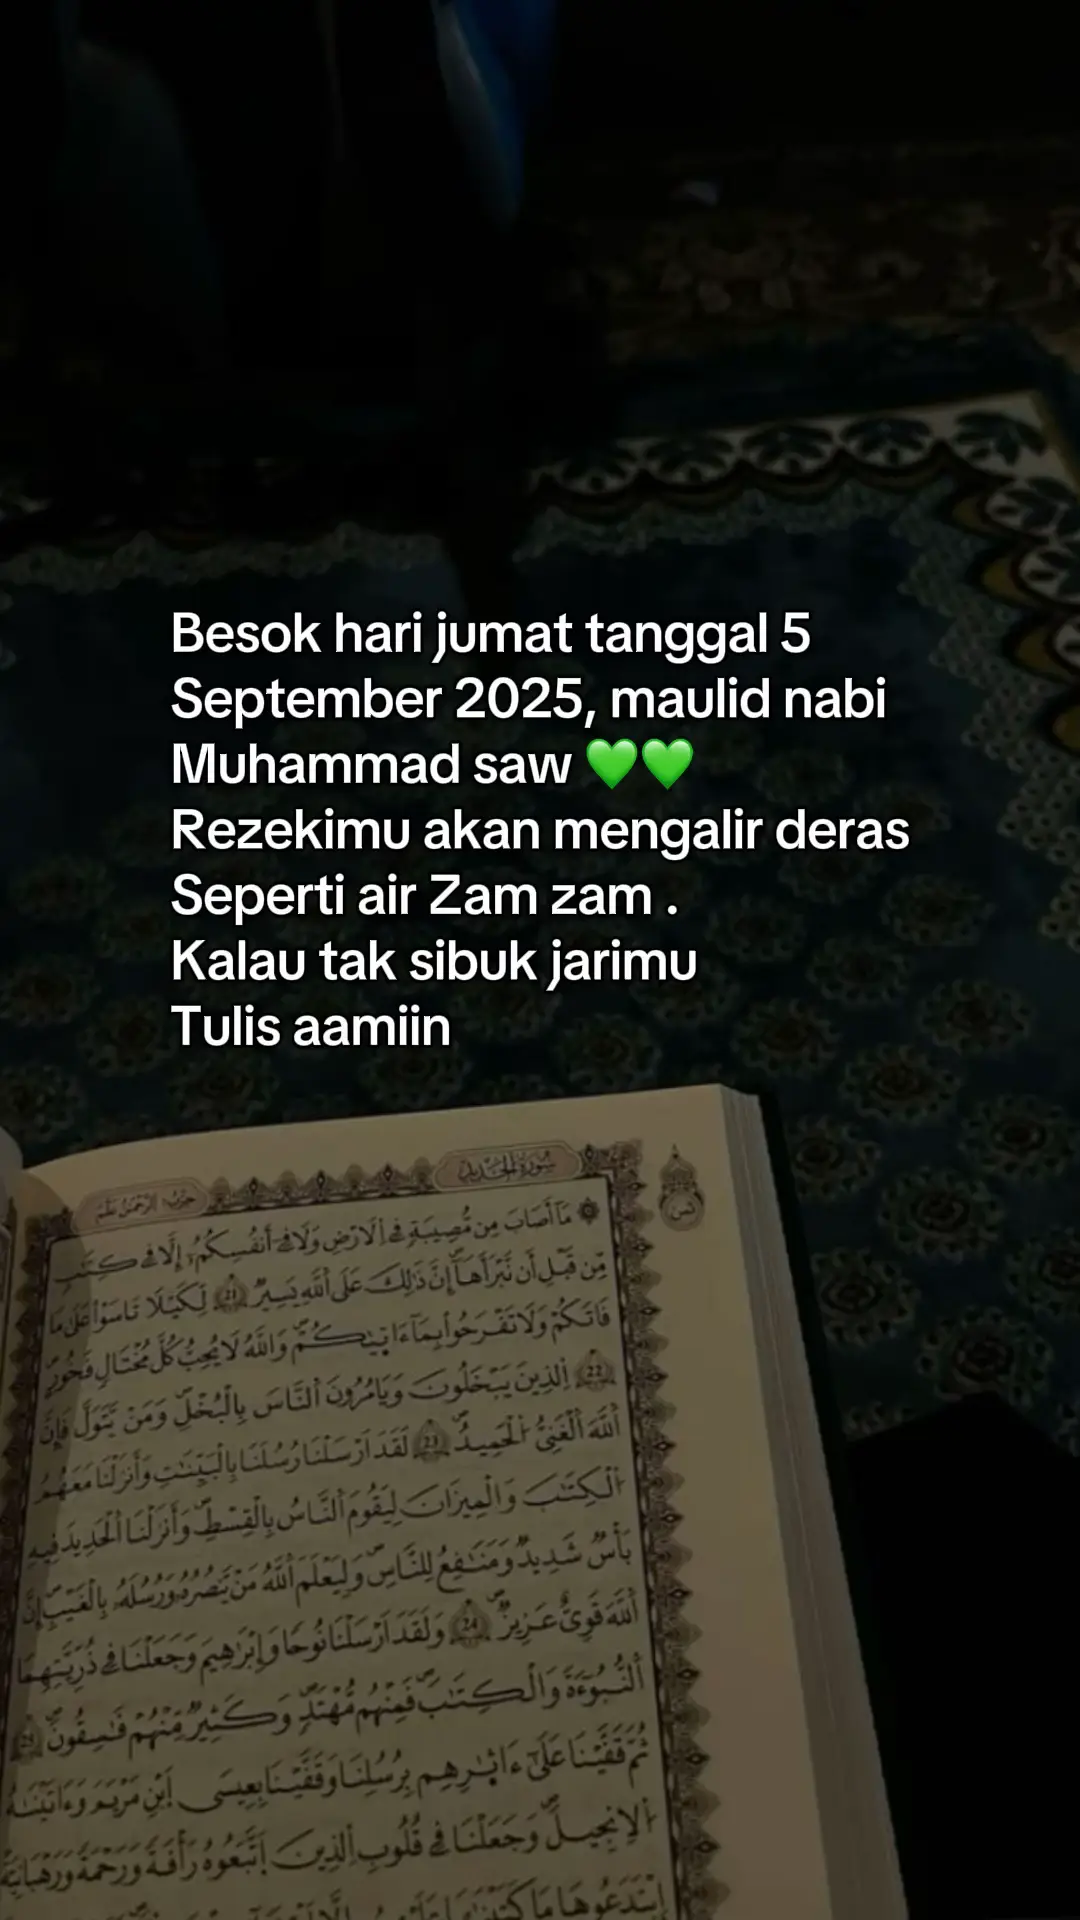 Besok hari jumat tanggal 5
September 2025, maulid nabi
Muhammad saw 💚💚
Rezekimu akan mengalir deras
Seperti air Zam zam .
Kalau tak sibuk jarimu
Tulis aamiin
سُورَةُ الْحَدِيدِ
مَآ أَصَابَ مِن مُّصِيبَةٍ فِي اِ۬لَارْضِ وَلَا فِےٓ أَنفُسِكُمُۥٓ إِلَّا فِے كِتَٰبٖ
مِّن قَبْلِ أَن نَّبْرَأَهَآۖ إِنَّ ذَٰلِكَ عَلَي اَ۬للَّهِ يَسِيرٞ 21 لِّكَيْلَا تَاسَوْاْ عَلَىٰ مَا
فَاتَكُمْ وَلَا تَفْرَحُواْ بِمَآ ءَاتَيٰكُمْۖ وَاللَّهُ لَا يُحِبُّ كُلَّ مُخْتَالٖ فَخُورٍ
22 اِ۬لذِينَ يَبْخَلُونَ وَيَامُرُونَ اَ۬لنَّاسَ بِالْبُخْلِۖ وَمَنْ يَّتَوَلَّ فَإِنَّ
اَ۬للَّهَ اَ۬لْغَنِيُّ اُ۬لْحَمِيدُۖ 23 لَقَدَ اَرْسَلْنَا رُسُلَنَا بِالْبَيِّنَٰتِ وَأَنزَلْنَا مَعَهُمُ
اُ۬لْكِتَٰبَ وَالْمِيزَانَ لِيَقُومَ اَ۬لنَّاسُ بِالْقِسْطِۖ وَأَنزَلْنَا اَ۬لْحَدِيدَ فِيهِ
بَأْسٞ شَدِيدٞ وَمَنَٰفِعُ لِلنَّاسِۖ وَلِيَعْلَمَ اَ۬للَّهُ مَنْ يَّنصُرُهُۥ وَرُسُلَهُۥ بِالْغَيْبِۖ إِنَّ
اَ۬للَّهَ قَوِيٌّ عَزِيزٞۖ 24 وَلَقَدَ اَرْسَلْنَا نُوحاٗ وَإِبْرَٰهِيمَ وَجَعَلْنَا فِے ذُرِّيَّتِهِمَا
اَ۬لنُّبُوٓءَةَ وَالْكِتَٰبَۖ فَمِنْهُم مُّهْتَدٖۖ وَكَثِيرٞ مِّنْهُمْ فَٰسِقُونَۖ 25
ثُمَّ قَفَّيْنَا عَلَىٰٓ ءَاثٰ۪رِهِم بِرُسُلِنَا وَقَفَّيْنَا بِعِيسَى اَ۪بْنِ مَرْيَمَ وَءَاتَيْنَٰهُ
اُ۬لِانجِيلَۖ وَجَعَلْنَا فِے قُلُوبِ اِ۬لذِينَ اَ۪تَّبَعُوهُ رَأْفَةٗ وَرَحْمَةٗۖ وَرَهْبَانِيَّةً
اِ۪بْتَدَعُوهَا مَا كَتَبْنَٰهَا